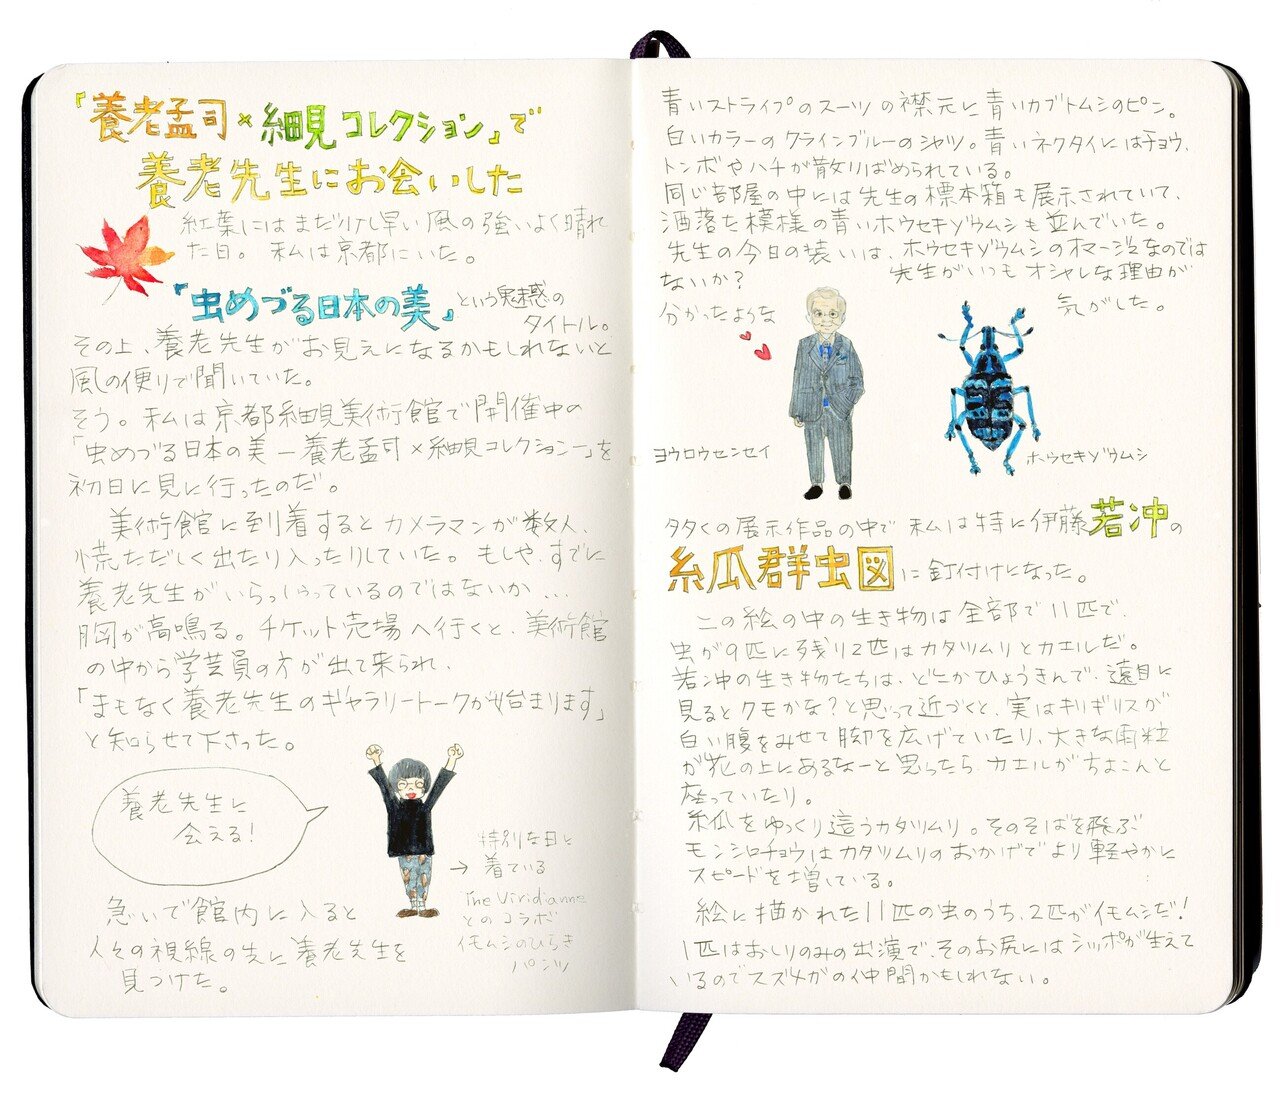 『養老孟司×細見コレクション』で
養老先生にお会いした
紅葉にはまだ少し早い風の強いよく晴れ
た日。私は京都にいた。
『虫めづる日本の美』という魅惑の
タイトル。
その上、養老先生がお見えになるかもしれないと
風の便りで聞いていた。
そう。私は京都細見美術館で開催中の
「虫めづる日本の美―養老孟司×細見コレクション―」を
初日に見に行ったのだ。
美術館に到着するとカメラマンが数人、
慌ただしく出たり入ったりしていた。もしや、すでに
養老先生がいらっしゃっているのではないか…
胸が高鳴る。チケット売場へ行くと、美術館
の中から学芸員の方が出て来られ、
「まもなく養老先生のギャラリートークが始まります」
と知らせて下さった。
養老先生に
会える!
特別な日と
→ 着ている
The Viridianne
とのコラボ
イモムシのひらき
パンツ
急いで館内に入ると
人々の視線の先に養老先生を
見つけた。
青いストライプのスーツの襟元に青いカブトムシのピン。
白いカラーのクラインブルーのシャツ。青いネクタイにはチョウ、
トンボやハチが散りばめられている。
同じ部屋の中には先生の標本箱も展示されていて、
洒落た模様の青いホウセキゾウムシも並んでいた。
先生の今日の装いは、ホウセキゾウムシのオマージュなのでは
ないか? 先生がいつもオシャレな理由が
分かったような 気がした。
ヨウロウセンセイ
ホウセキゾウムシ
多くの展示作品の中で私は特に伊藤若冲の
糸瓜群虫図に釘付けになった。
この絵の中の生き物は全部で11匹で、
虫が9匹に残り2匹はカタツムリとカエルだ。
若冲の生き物たちは、どこかひょうきんで、遠目に
見るとクモかな?と思って近づくと、実はキリギリスが
白い腹をみせて脚を広げていたり、大きな雨粒
が花の上にあるなーと思ったら、カエルがちょこんと
座っていたり。
糸瓜をゆっくり這うカタツムリ。そのそばを飛ぶ
モンシロチョウはカタツムリのおかげでより軽やかに
スピードを増している。
絵に描かれた11匹の虫のうち、2匹がイモムシだ!
1匹はおしりのみの出演で、そのお尻にはシッポが生えて
いるのでスズメガの仲間かもしれない。